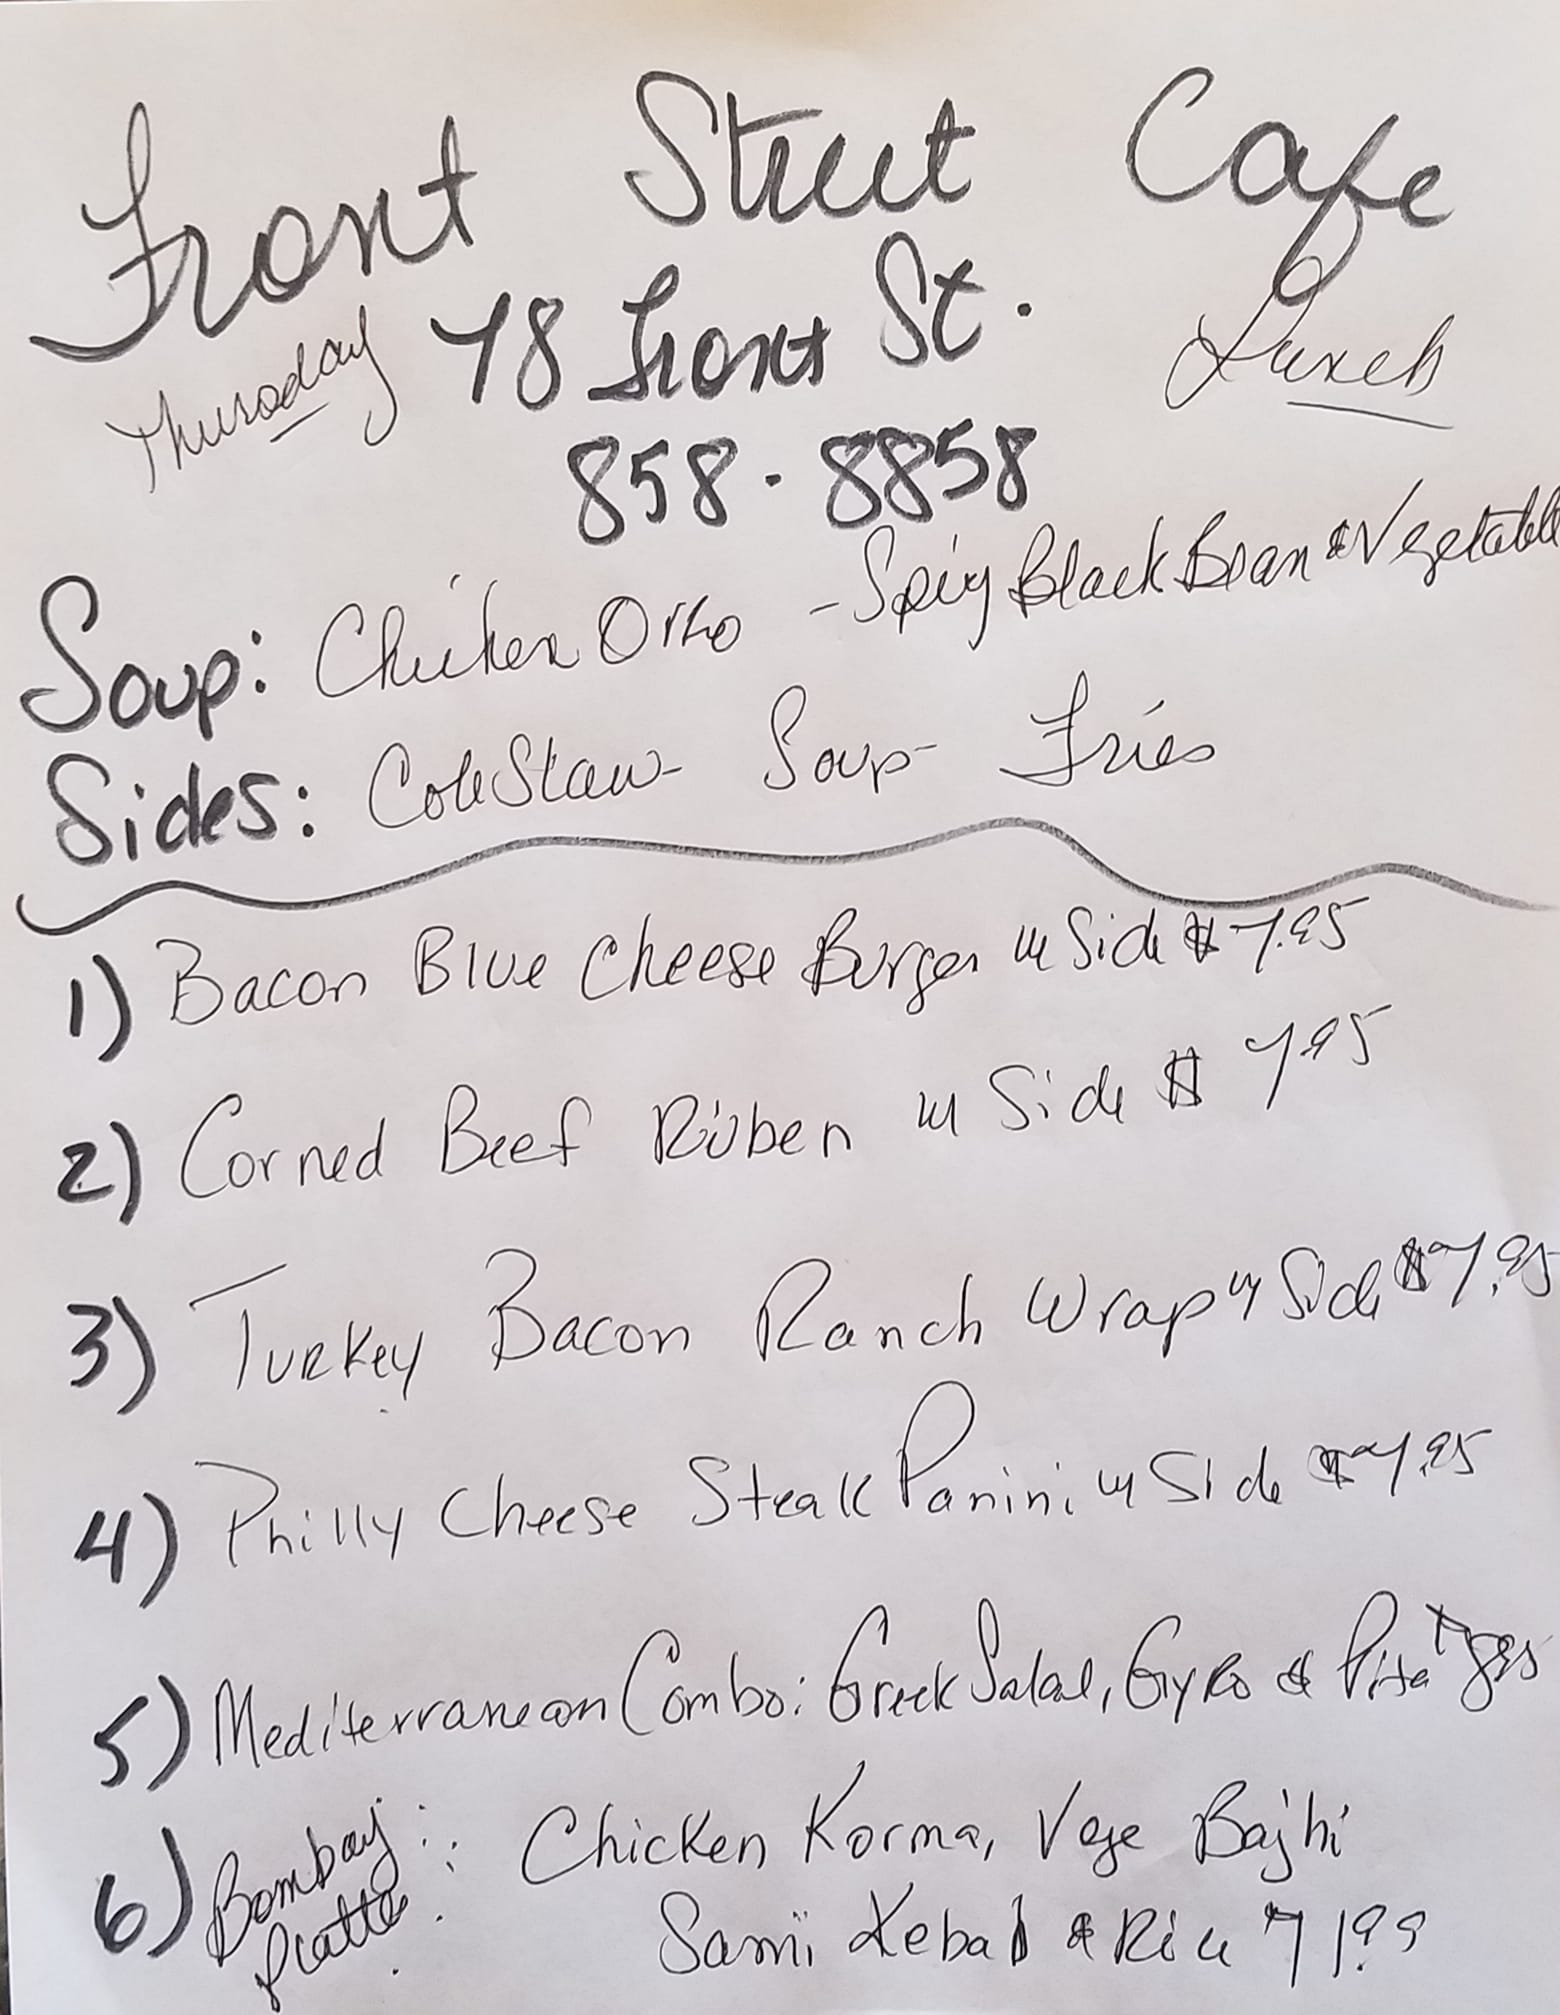 Front Street Cafe
Thursday 78 Front St. Lunch
858-8858
Soup: Chicken Orzo - Spicy Black Bean & Vegetable
Sides: Cole Slaw - Soup - Fries
1) Bacon Blue Cheese Burger w Side $7.95
2) Corned Beef Rüben w Side $7.95
3) Turkey Bacon Ranch Wrap w Side $7.95
4) Philly Cheese Steak Panini w Side $7.95
5) Mediterranean Combo: Greek Salad, Gyro & Pita
6) Bombay Platter: Chicken Korma, Vege Bajhi
Sami Kebab & Rice